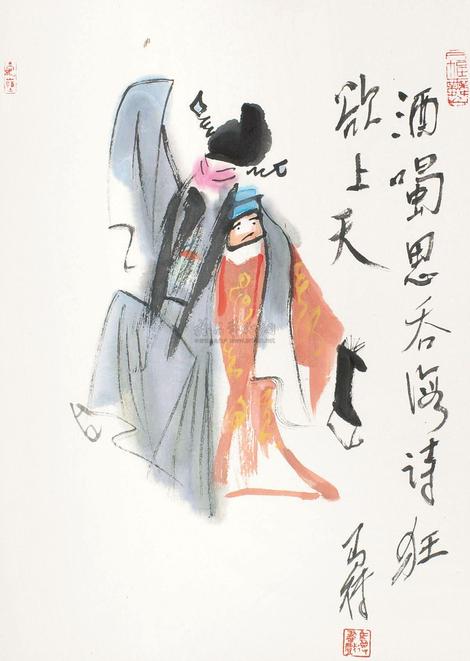 酒喝思吞海诗狂
欲上天
马得